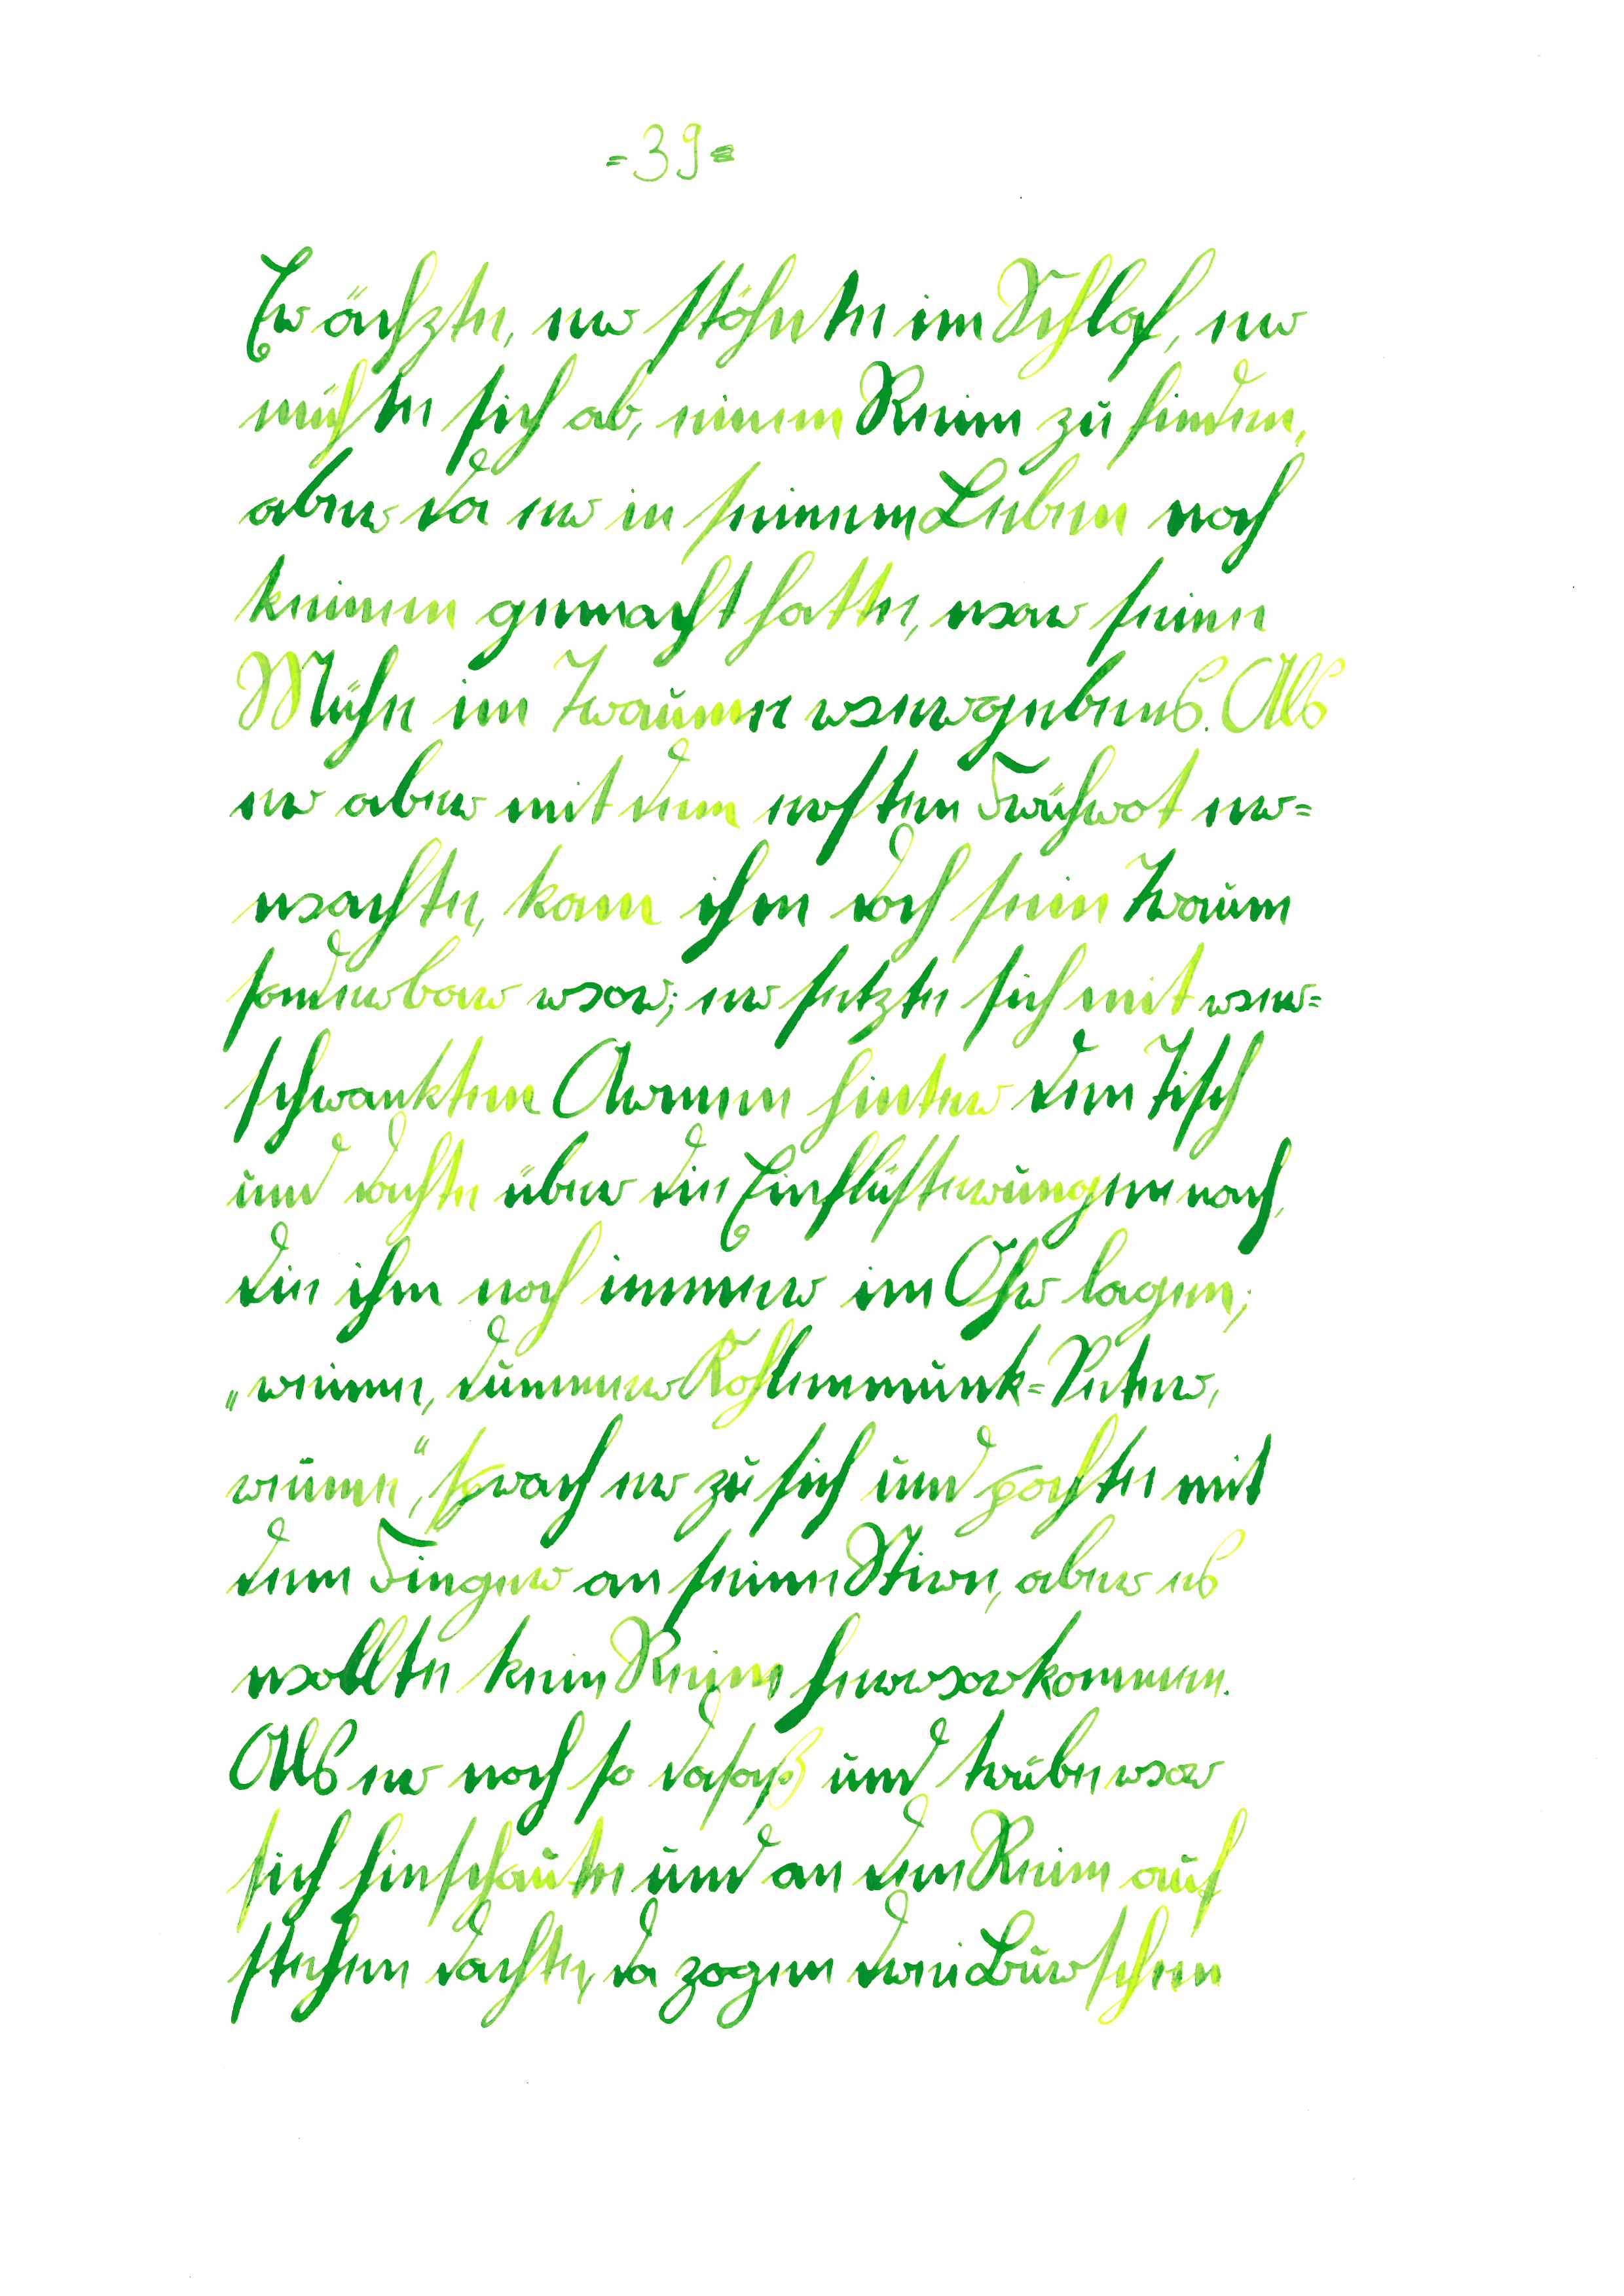 -39-
Er ächzte, er stöhnte im Schlaf, er
mühte sich ab, einen Reim zu finden,
aber da er in seinem Leben noch
keinen gemacht hatte, war seine
Mühe im Traume vergebens. Als
er aber mit dem ersten Frührot er=
wachte, kam ihm doch sein Traum
sonderbar vor; er setzte sich mit ver=
schränkten Armen hinter den Tisch
und dachte über die Einflüsterungen nach,
die ihm noch immer im Ohr lagen;
„reime, dummer Kohlenmunk=Peter,
reime", sprach er zu sich und pochte mit
dem Finger an seine Stirn, aber es
wollte kein Reim hervorkommen.
Als er noch so dasaß und trübe vor
sich hinschaute und an den Reim auf
stehen dachte, da zogen drei Burschen